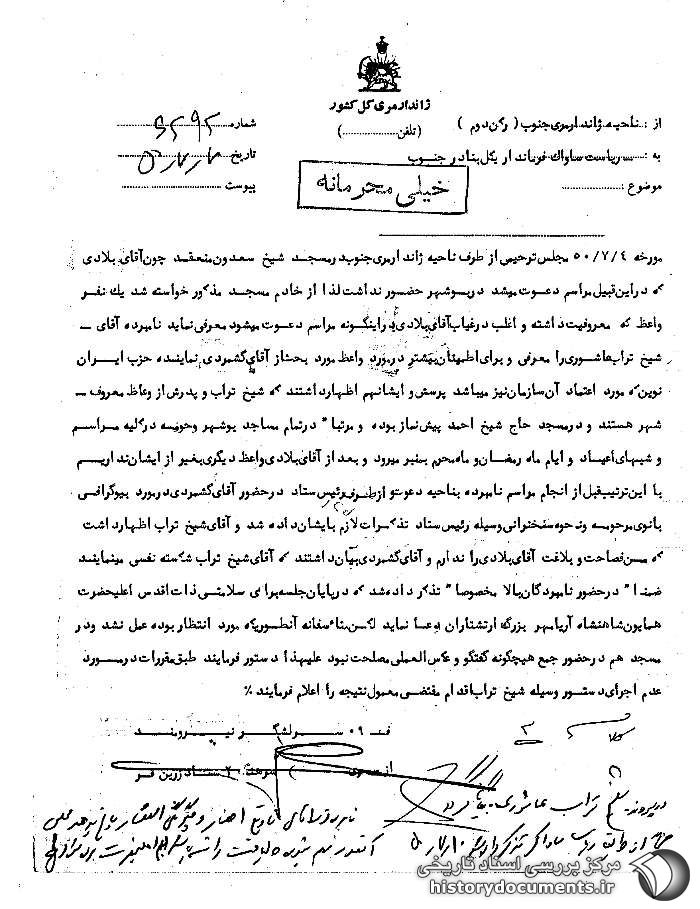 ژاندارمری کل کشور
از : ناحیه ژاندارمری جنوب ( رکن دوم )
(تلفن ................)
شماره ۵۲۹۲
به : ریاست ساواک فرمانداری کل بنادر جنوب
تاریخ
موضوع :
پیوست
خیلی محرمانه
مورخه ۵۰/۷/۴ مجلس ترحیمی از طرف ناحیه ژاندارمری جنوب در مسجد شیخ سعدون منعقد چون آقای بلادی
که در این قبیل مراسم دعوت میشد در بوشهر حضور نداشت لذا از خادم مسجد مذکور خواسته شد یک نفر
واعظ که معروفیت داشته و اغلب در غیاب آقای بلادی در اینگونه مراسم دعوت میشود معرفی نماید نامبرده آقای ـ
شیخ تراب عاشوری را معرفی و برای اطمینان بیشتر در مورد واعظ مورد بحث از آقای گشمردی نماینده حزب ایران
نوین که مورد اعتماد آن سازمان نیز میباشد پرسش و ایشان هم اظهار داشتند که شیخ تراب و پدرش از وعاظ معروف ـ
شهر هستند و در مسجد حاج شیخ احمد پیش نماز بوده و مرتبا" در تمام مساجد بوشهر وحومه در کلیه مراسم
و شبهای اعیاد و ایام ماه رمضان و ماه محرم بمنبر میرود و بعد از آقای بلادی واعظ دیگری بغیر از ایشان نداریم
با این ترتیب قبل از انجام مراسم نامبرده بناحیه دعوت و از طرف رئیس ستاد در حضور آقای گشمردی در مورد بیوگرافی
بانوی مرحومه ونحوه سخنرانی وسیله رئیس ستاد تذکرات لازم بایشان داده شد و آقای شیخ تراب اظهار داشت
که من فصاحت و بلاغت آقای بلادی را ندارم و آقای گشمردی بیان داشتند که آقای شیخ تراب شکسته نفسی مینمایند
ضمنا" در حضور نامبردگان بالا مخصوصا" تذکر داده شد که در پایان جلسه برای سلامتی ذات اقدس اعلیحضرت
همایون شاهنشاه آریامهر بزرگ ارتشتاران دعا نماید لکن متاسفانه آنطوریکه مورد انتظار بوده عمل نشد ودر
مسجد هم در حضور جمع هیچگونه گفتگو و عکس العملی مصلحت نبود علیهذا دستور فرمایند طبق مقررات در مورد
عدم اجرای دستور وسیله شیخ تراب اقدام مقتضی معمول نتیجه را اعلام فرمایند ٪
سرلشگر نیرومند
در پرونده شیخ تراب عاشوری بایگانی گردد
مرکز بررسی اسناد تاریخی
historydocuments.ir